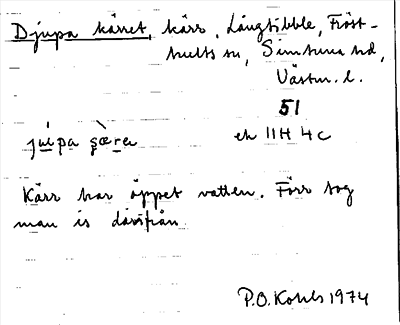 Djupa kärret, kärr, Långtibble, Fröst-
hults sn, Simtuna hd,
Västm. l.
51
júipa çæ̀ren ek 11H 4c
Kärr har öppet vatten. Förr tog
man is därifrån.
P.O. Kohls 1974